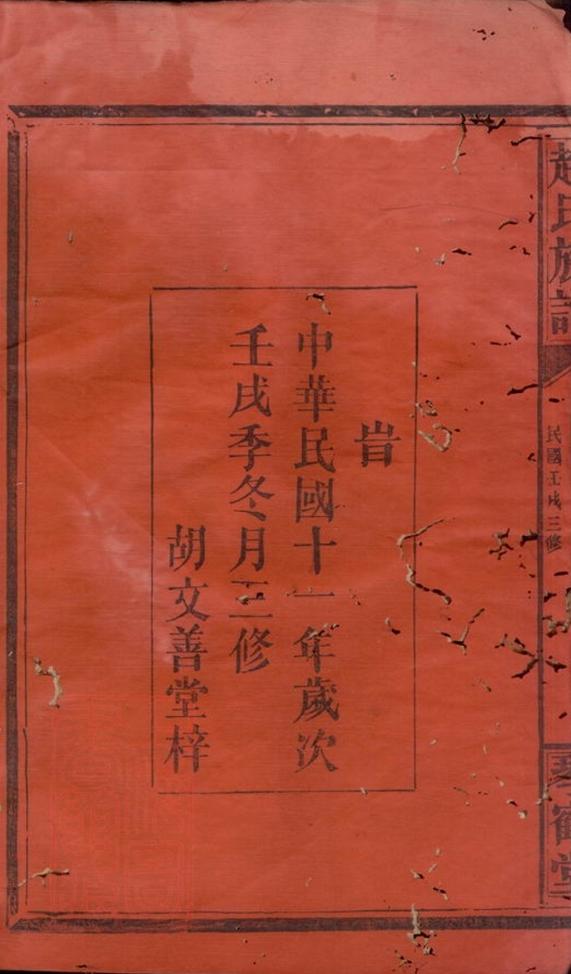 旹
中華民國十一年歲次
壬戌季冬月三修
胡文善堂梓
趙氏族譜
民國壬戌三修
琴鶴堂